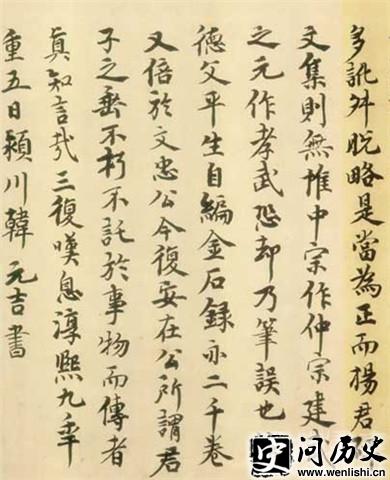 多訛舛脫略是當為正而楊君
文集則無惟中宗作仲宗建
之元作孝武恐却乃筆誤也
德父平生自編金石録亦二千卷
又倍於文忠公今復安在公所謂君
子之垂不朽不託於事物而傳者
真知言哉三復嘆息淳熙九年
重五日潁川韓元吉書
问历史
www.wenlishi.cn